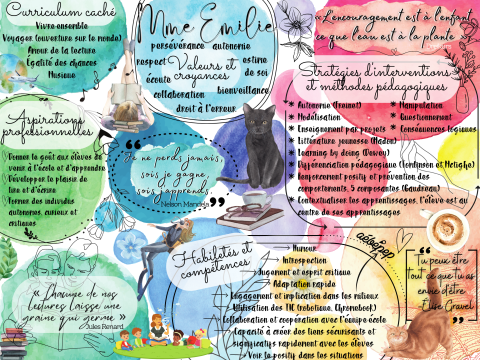 Curriculum caché
Vivre ensemble
Voyager (ouverture sur le monde)
Amour de la lecture
Égalité des chances
Musique
Mme Emilie
persévérance autonomie
respect Valeurs et estime
écoute croyances de soi
collaboration bienveillance
droit à l'erreur
«L'encouragement est à l'enfant
ce que l'eau est à la plante »
Stratégies d'interventions
et méthodes pédagogiques
* Autonomie (Freinet)
* Modélisation
* Enseignement par projets
* Manipulation
* Questionnement
* Conséquences logiques
* Littérature jeunesse (Nadon)
* Learning by doing (Dewey)
* Différenciation pédagogique (Tomlinson et
* Renforcement positif et prévention des
comportements, 5 composantes (Gaudreau)
* Contextualiser les apprentissages, l'élève est au
centre de ses apprentissages
Aspirations
professionnelles
Donner le goût aux élèves de
venir à l'école et d'apprendre
Développer le plaisir de
lire et d'écrire
Former des individus
autonomes, curieux et
critiques
“Je ne perds jamais,
soit je gagne,
soit j'apprends.
Nelson Mandela ”
Habiletés et
compétences
Humour
Introspection
Jugement et esprit critique
Adaptation rapide
Engagement et implication dans les milieux
Utilisation des TIC (robotique, Chromebook)
Collaboration et coopération avec l'équipe école
Capacité à créer des liens sécurisants et
significatifs rapidement avec les élèves
Voir le positif dans les situations
« Chacune de nos
lectures laisse une
graine qui germe »
Jules Renard
“Tu peux être
tout ce que tu as
envie d'être.
Élise Gravel ”